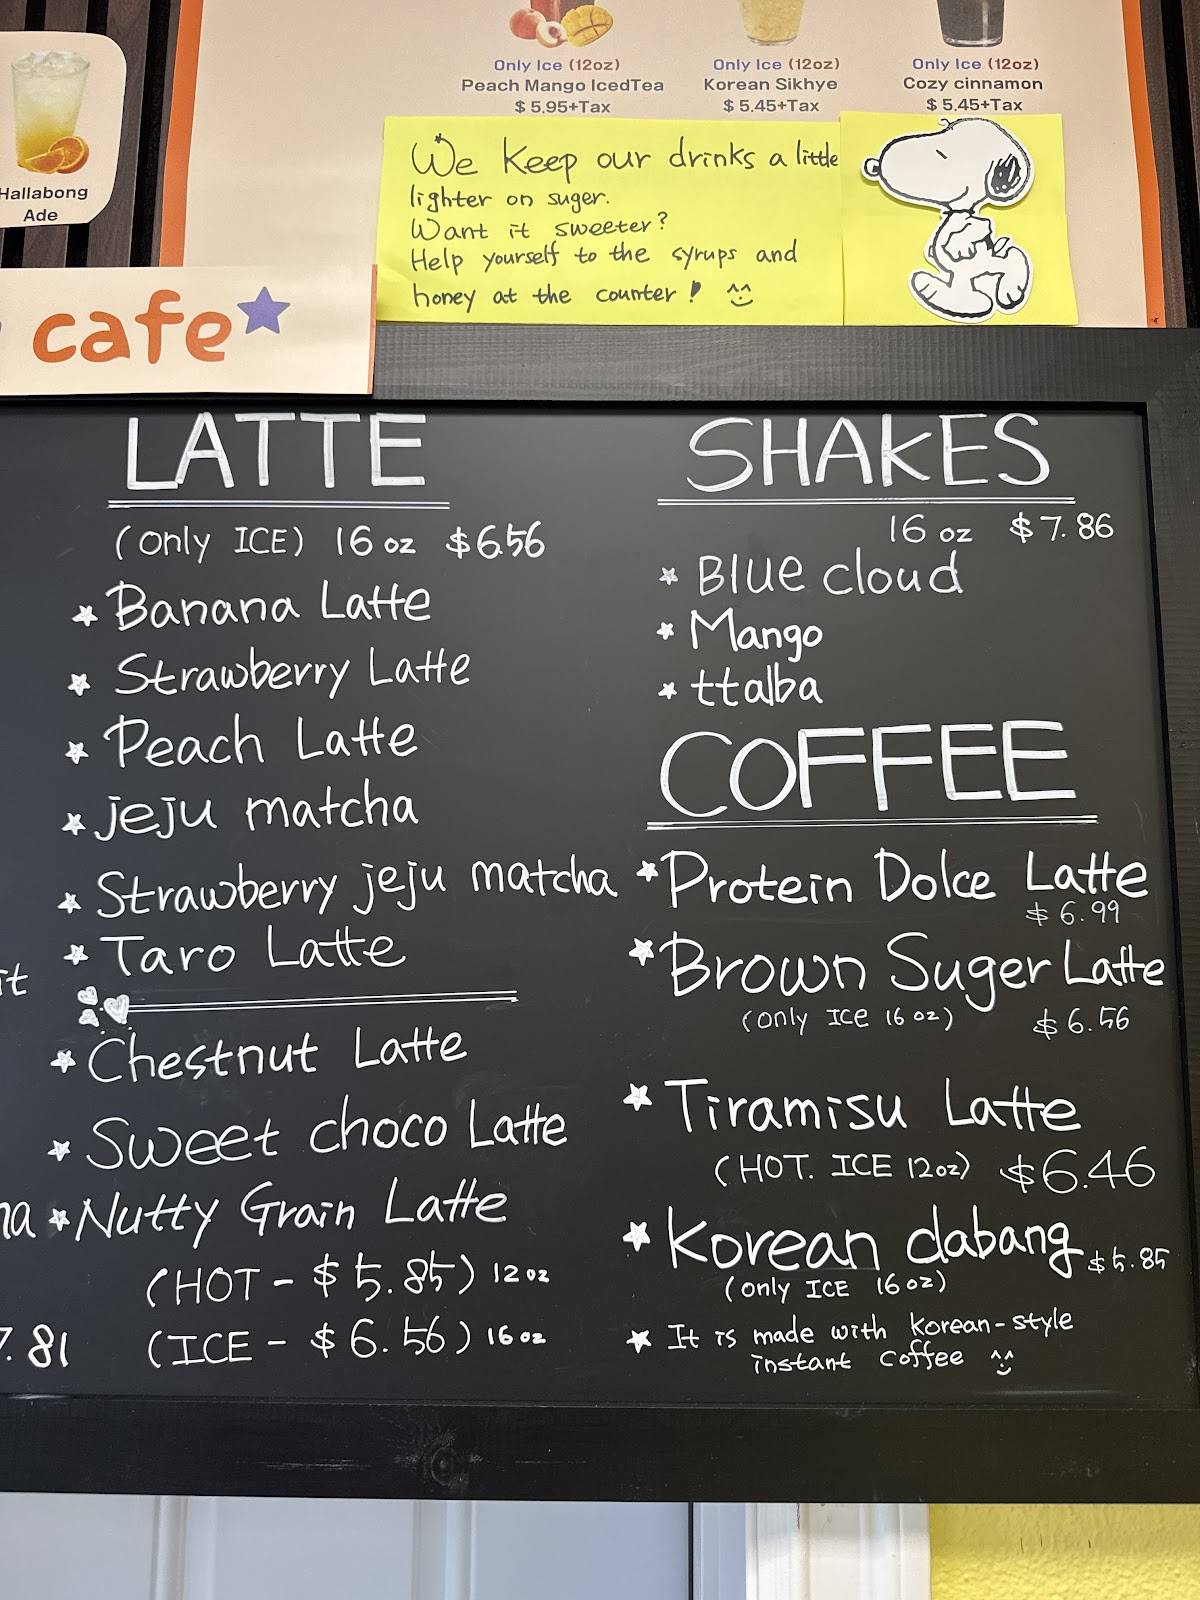 Only Ice (12oz)
Peach Mango IcedTea
$ 5.95+Tax
Only Ice (12oz)
Korean Sikhye
$ 5.45+Tax
Only Ice (12oz)
Cozy cinnamon
$ 5.45+Tax
Hallabong
Ade
We Keep our drinks a little
lighter on suger.
Want it sweeter?
Help yourself to the syrups and
honey at the counter! ^^
cafe
LATTE
(only ICE) 16 oz $6.56
Banana Latte
Strawberry Latte
Peach Latte
jeju matcha
Strawberry jeju matcha
Taro Latte
Chestnut Latte
Sweet choco Latte
Nutty Grain Latte
(HOT - $5.85) 12 oz
(ICE - $6.56) 16 oz
SHAKES
16 oz $7.86
Blue cloud
Mango
ttalba
COFFEE
Protein Dolce Latte
$6.99
Brown Suger Latte
(only Ice 16 oz) $6.56
Tiramisu Latte
(HOT. ICE 12oz) $6.46
Korean dabang $5.85
(only ICE 16 oz)
It is made with korean-style
instant coffee ^^
it
na
7.81